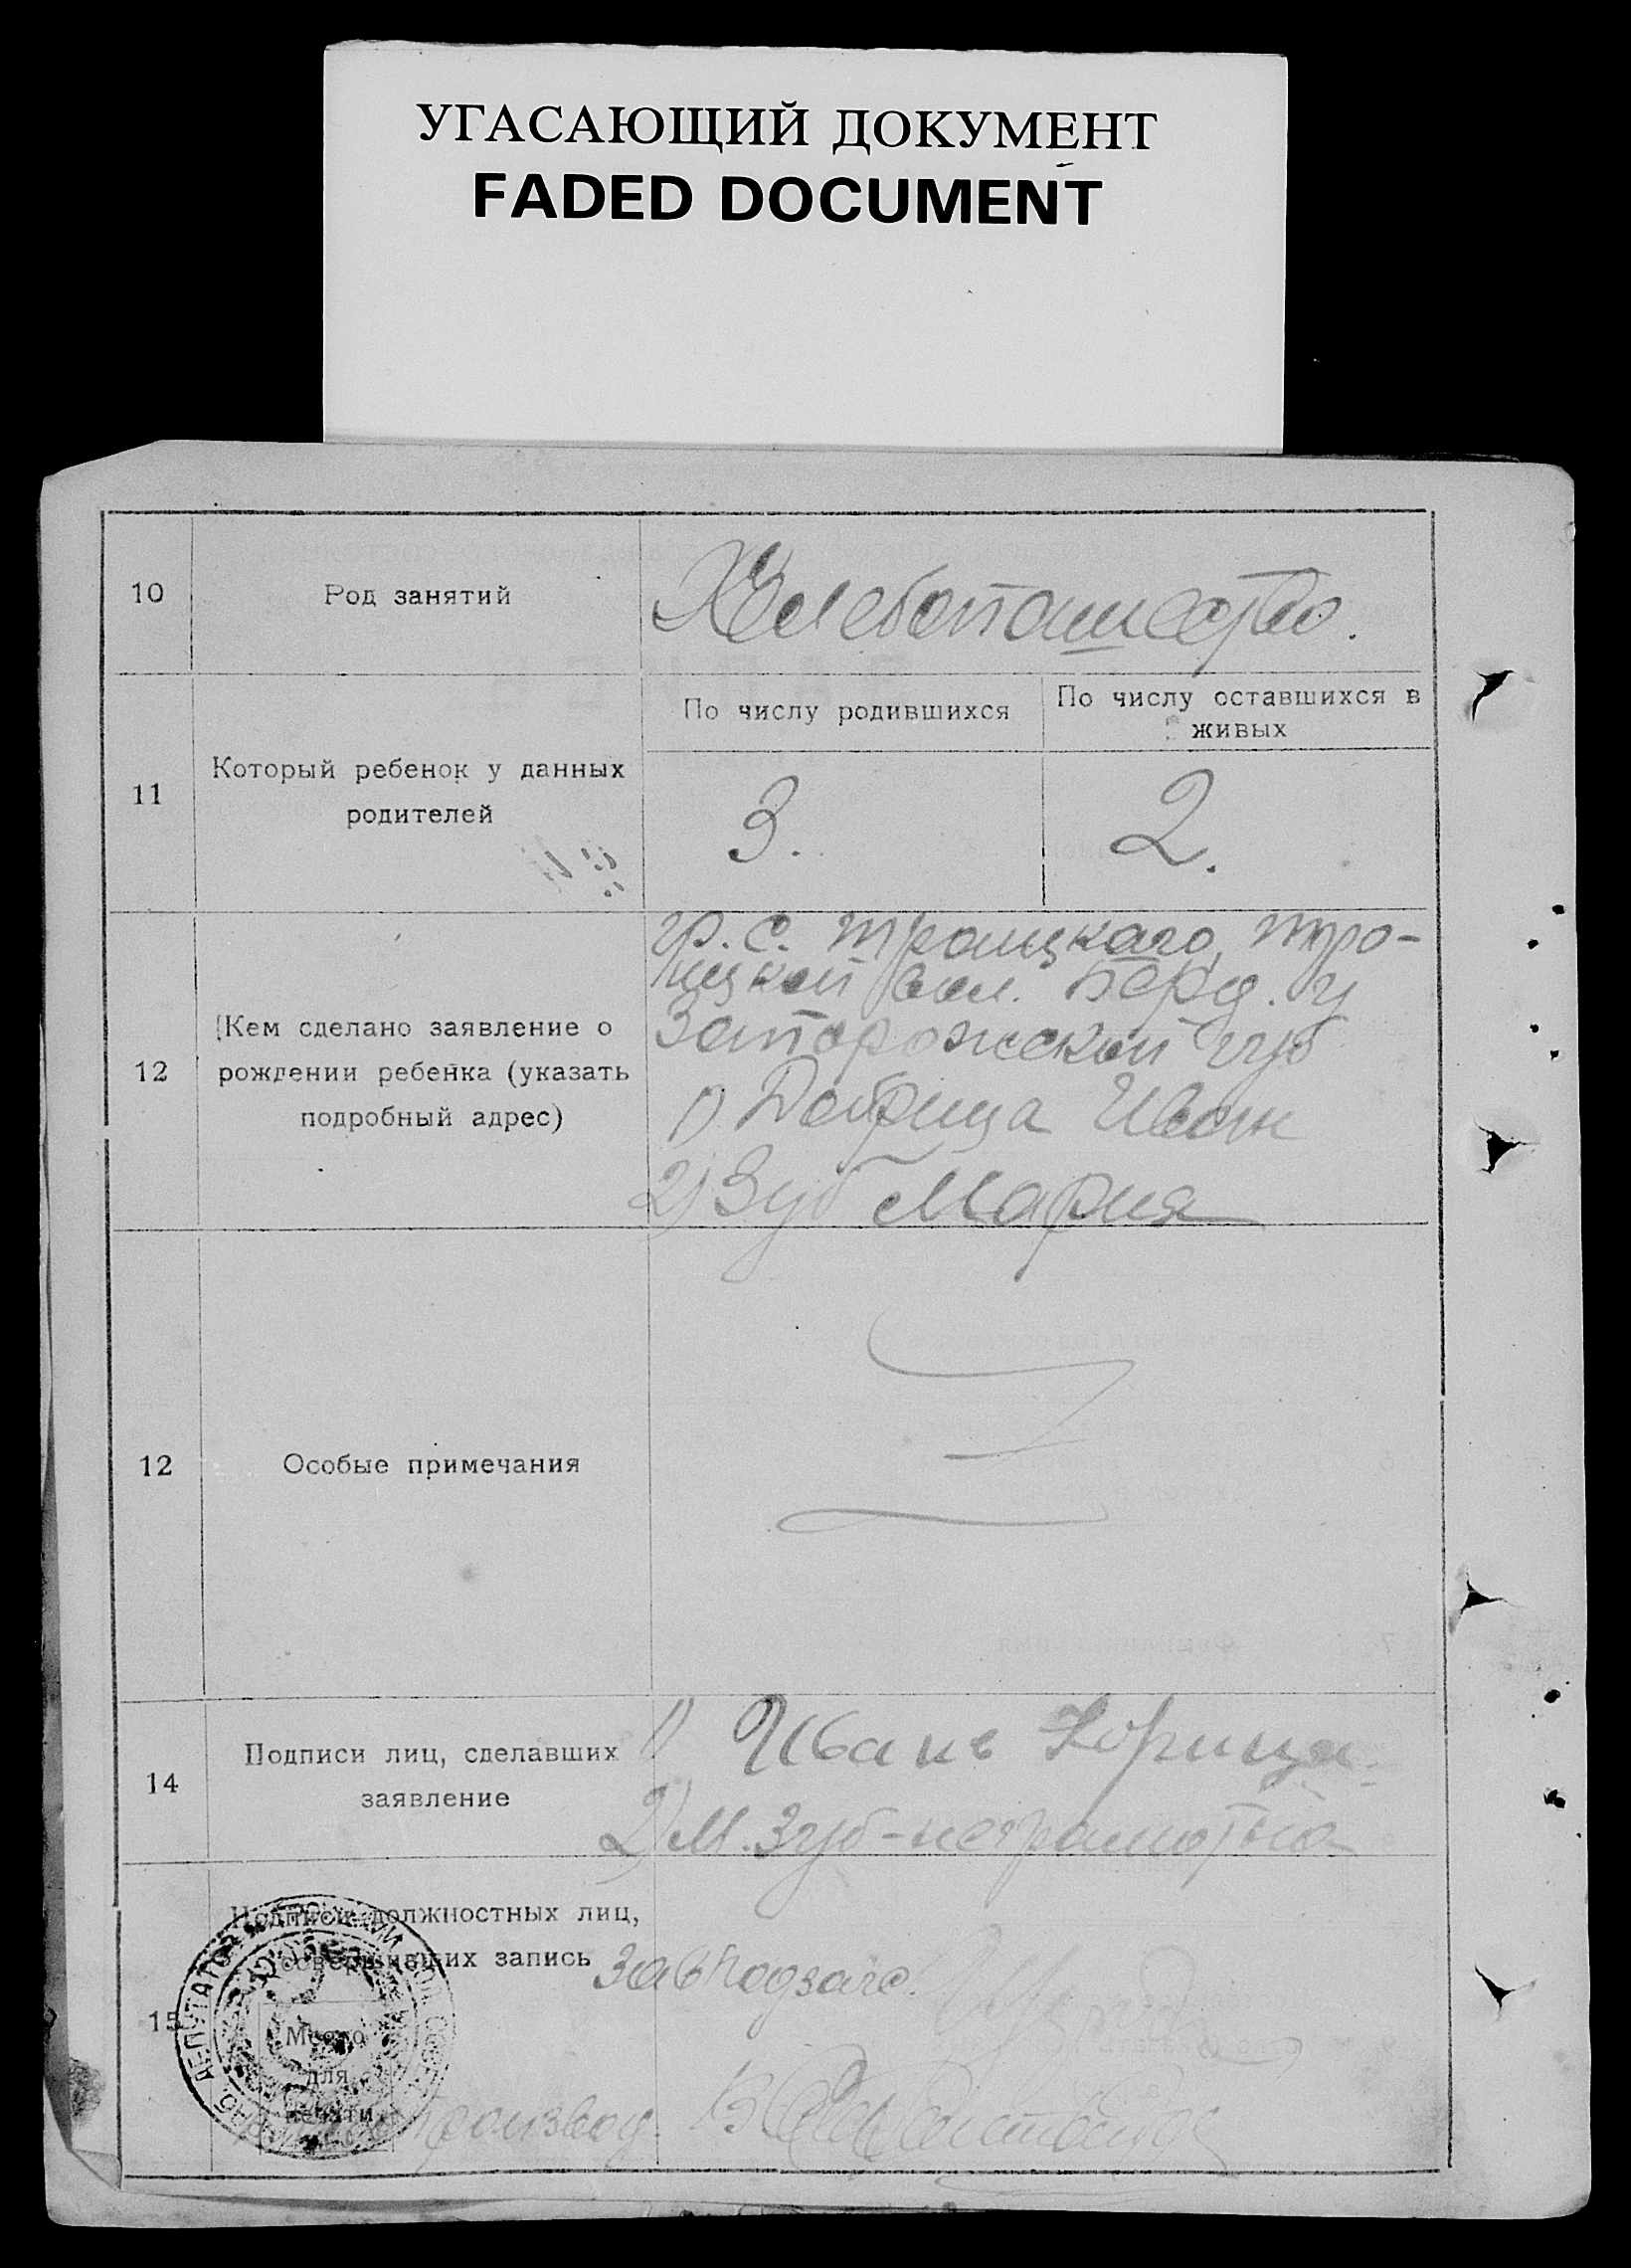 УГАСАЮЩИЙ ДОКУМЕНТ
FADED DOCUMENT
10
Род занятий
Хлебопашество.
11
Который ребенок у данных
родителей
По числу родившихся
По числу оставшихся в
живых
3.
2.
12
Кем сделано заявление о
рождении ребенка (указать
подробный адрес)
гр. с. Троицкаго, Трo-
ицкой вол. Берд. у
Запорожской губ
1) Добрица Иван
2) Зуб Мария
12
Особые примечания
14
Подписи лиц, сделавших
заявление
1) Иванъ
2) М. Зуб-неграмотна
15
Подписи должностных лиц,
совершивших запись
Завподзагс.
Место
для
печати
производ.